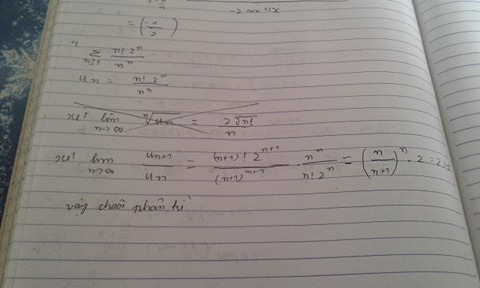 = (-1/2)
Σ n≥1 n! 2^n / n^n
u_n = n! 2^n / n^n
xét lim n→∞ ⁿ√u_n = 2 ⁿ√n! / n
xét lim n→∞ u_n+1 / u_n = (n+1)! 2^n+1 / (n+1)^n+1 . n^n / n! 2^n = (n / n+1)^n . 2 =
vậy chuỗi phân kì